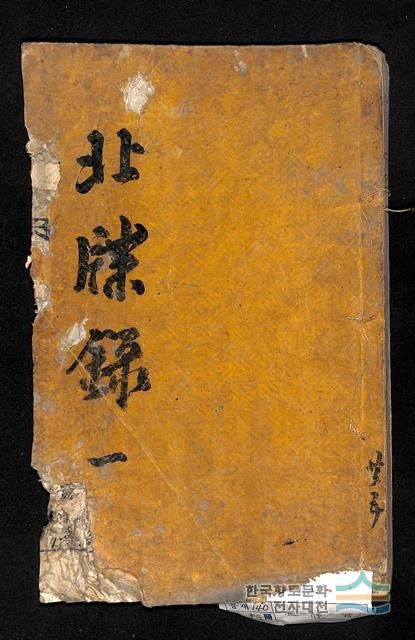 北牒錄 一
한국향토문화
전자대전
140